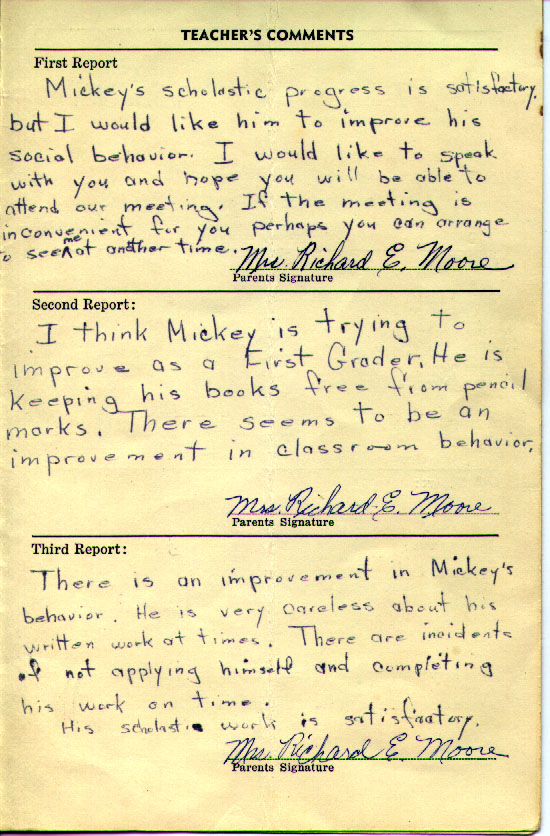 TEACHER'S COMMENTS
First Report
Mickey's scholastic progress is satisfactory.
but I would like him to improve his
social behavior. I would like to speak
with you and hope you will be able to
attend our meeting. If the meeting is
inconvenient for you perhaps you can arrange
o see me at another time.
Mrs. Richard E. Moore
Parents Signature
Second Report:
I think Mickey is trying to
improve as a First Grader. He is
keeping his books free from pencil
marks. There seems to be an
improvement in classroom behavior.
Mrs. Richard E. Moore
Parents Signature
Third Report:
There is an improvement in Mickey's
behavior. He is very careless about his
written work at times. There are incidents
of not applying himself and completing
his work on time.
His scholastic work is satisfactory.
Mrs. Richard E. Moore
Parents Signature